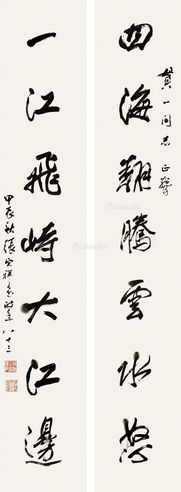 四海翻騰雲水怒
一同志 正
一江飛峙大江邊
甲辰秋張宗祥書時年八十三